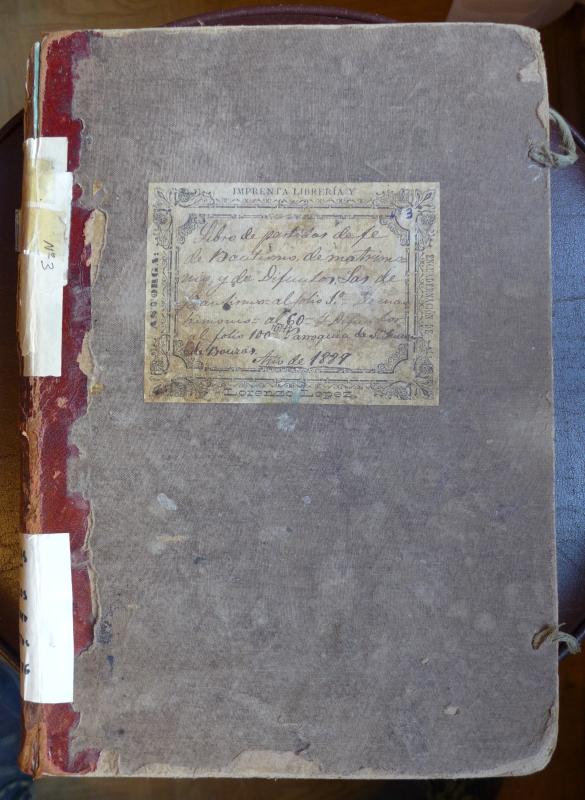 IMPRENTA LIBRERÍA Y
ENCUADERNACIÓN DE
ASTORGA:
3
Libro de partidas de fe
de Bautismo, de matrimo
nio, y de Difuntos, Las de
Bautismo= al folio 1º. De ma
trimonio= al 60= de Difuntos
folio 100= Parroquia de
de Bouzas
Año de 1899
Lorenzo Lopez.
Nº 3